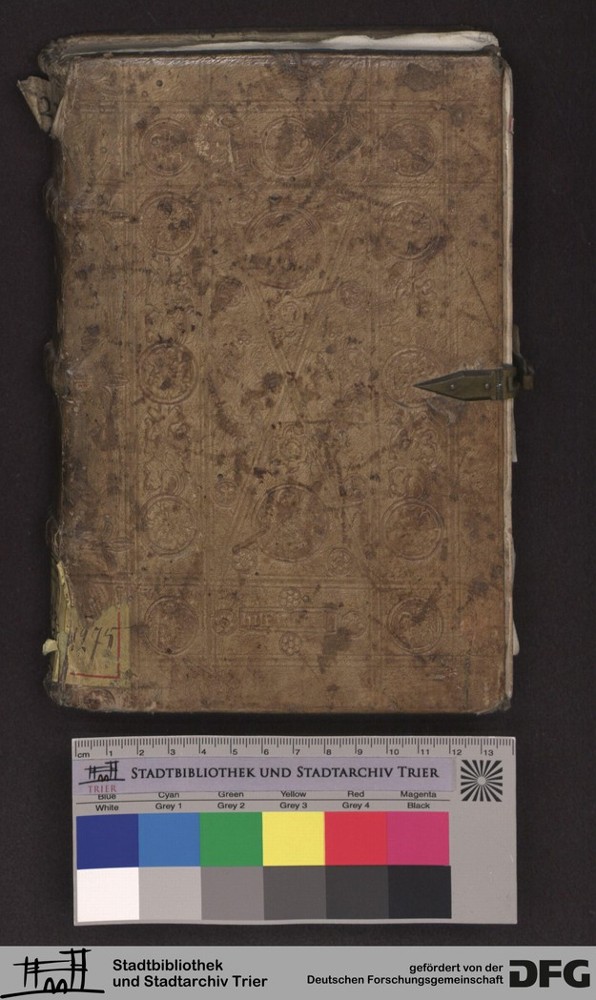 cm 1 2 3 4 5 6 7 8 9 10 11 12 13
STADTBIBLIOTHEK UND STADTARCHIV TRIER
TRIER
Blue Cyan Green Yellow Red Magenta
White Grey 1 Grey 2 Grey 3 Grey 4 Black
Stadtbibliothek
und Stadtarchiv Trier
gefördert von der
Deutschen Forschungsgemeinschaft
DFG